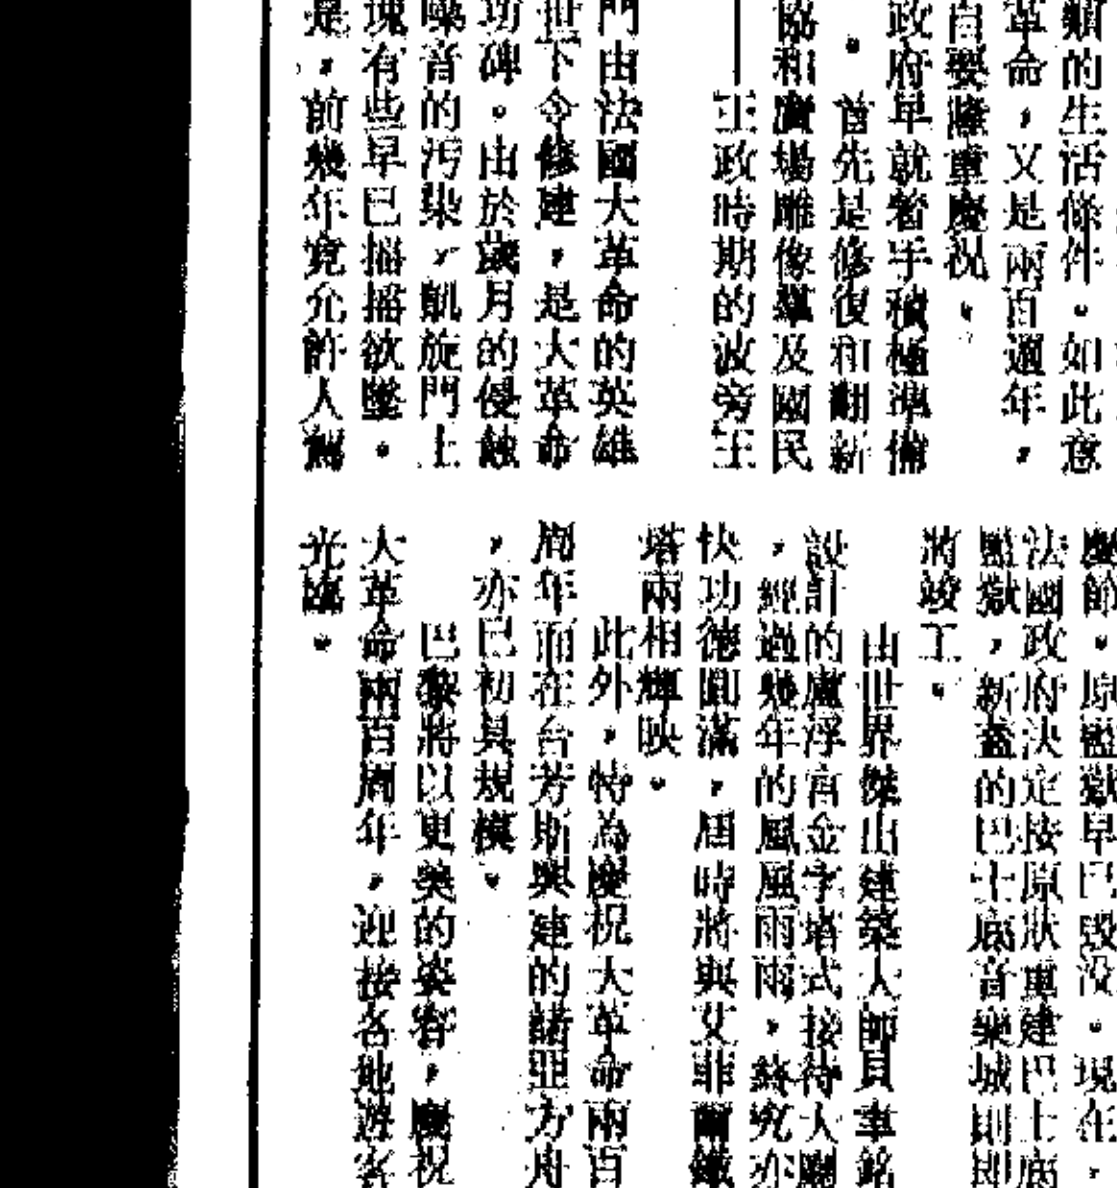 類的生活條件。如此意
革命，又是兩百週年，
自要隆重慶祝。
政府早就着手積極準備
。首先是修復和翻新
協和廣場雕像羣及國民
——王政時期的波旁王
門由法國大革命的英雄
世下令修建，是大革命
功碑。由於歲月的侵蝕
噪音的污染，凱旋門上
塊有些早已搖搖欲墜。
是，前幾年竟允許人
慶節。原監獄早已毀沒。現在，
法國政府決定按原狀重建巴士底
監獄，新蓋的巴士底音樂城則即
將竣工。
由世界傑出建築大師貝聿銘
設計的盧浮宮金字塔式接待大廳
，經過幾年的風風雨雨，終究亦
快功德圓滿，屆時將與艾菲爾鐵
塔兩相輝映。
此外，特為慶祝大革命兩百
周年而在台芳斯興建的諸亞方舟
，亦已初具規模。
巴黎將以更美的姿容，慶祝
大革命兩百周年，迎接各地遊客
光臨。